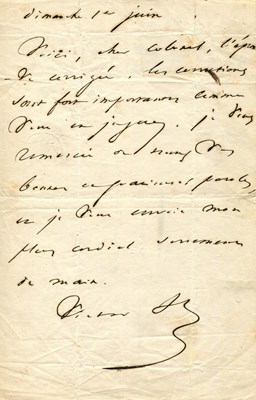 dimanche 1er juin
Voici, cher colonel, l'épreu-
ve corrigée. les corrections
sont fort importantes comme
vous en jugerez. je vous
remercie de vos
bonnes et gracieuses paroles,
et je vous envoie mon
plus cordial serrement
de main.
Victor H